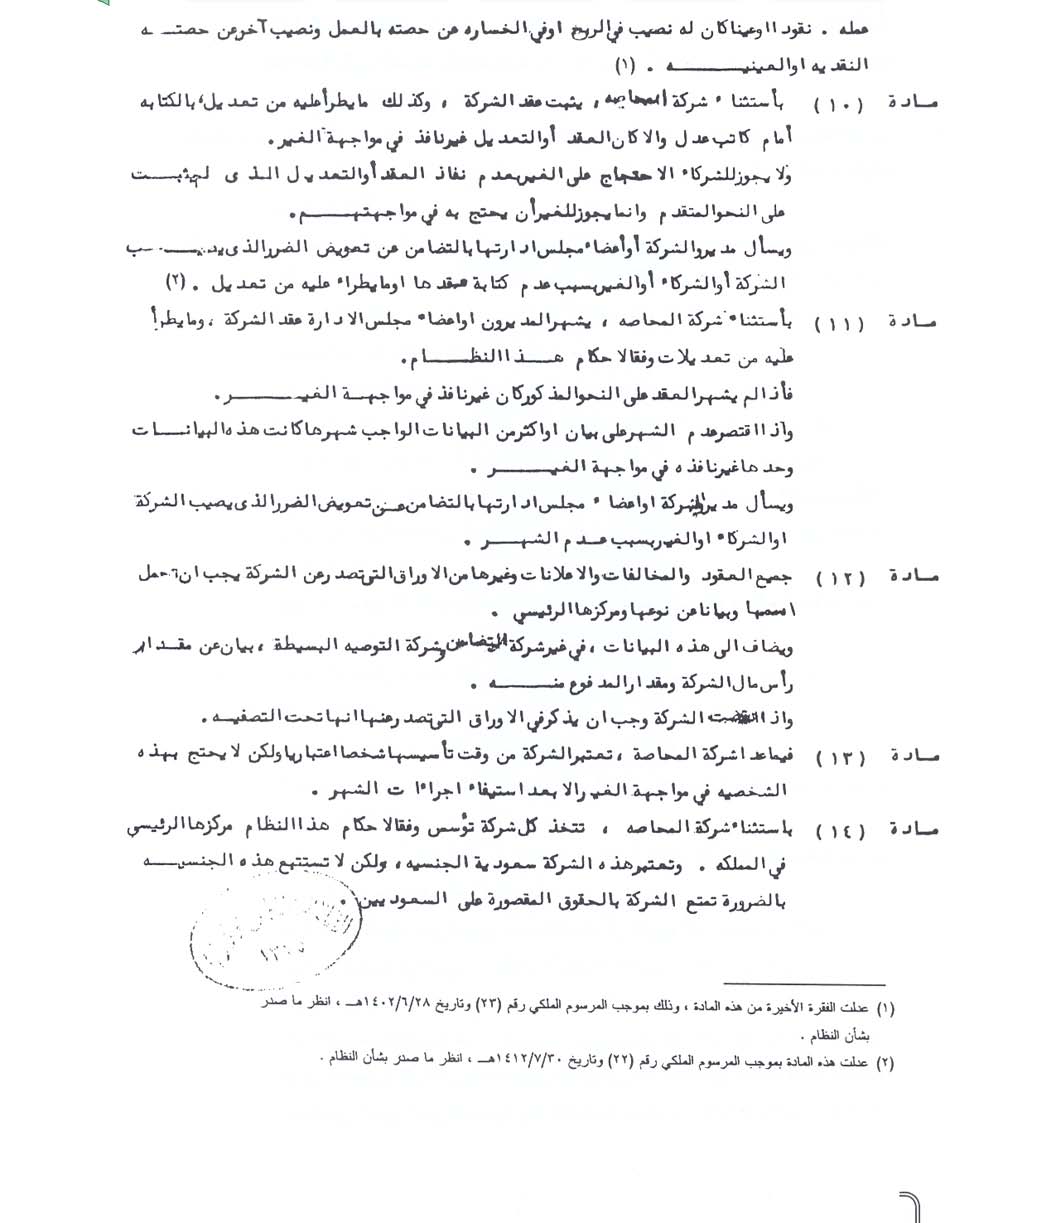 عمله . نقودا اوعينا كان له نصيب في الربح اوفي الخساره عن حصته بالعمل ونصيب آخرعن حصته
النقديه اوالعينيه . (١)
مادة (١٠) بأستثناء شركة المحاصه، يثبت عقد الشركة ، وكذلك مايطرأعليه من تعديل، بالكتابه
أمام كاتب عدل والا كان العقد أوالتعديل غيرنافذ في مواجهة الغير.
ولا يجوز للشركاء الاحتجاج على الغيربعدم نفاذ العقد أوالتعديل الذى لم يثبت
على النحوالمتقدم وانما يجوز للغيرأن يحتج به في مواجهتهم.
ويسأل مديروالشركة أوأعضاء مجلس ادارتها بالتضامن عن تعويض الضررالذى يصيب
الشركة أوالشركاء أوالغيربسبب عدم كتابة عقدها اومايطراء عليه من تعديل . (٢)
مادة (١١) بأستثناء شركة المحاصه ، يشهرالمديرون اواعضاء مجلس الادارة عقد الشركة ، ومايطرأ
عليه من تعديلات وفقالاحكام هذاالنظام.
فأذالم يشهرالعقد على النحوالمذكوركان غيرنافذ في مواجهة الغير.
واذااقتصرعدم الشهرعلى بيان اواكثرمن البيانات الواجب شهرها كانت هذه البيانات
وحدها غيرنافذه في مواجهة الغير .
ويسأل مديرالشركة اواعضاء مجلس ادارتها بالتضامن عن تعويض الضررالذى يصيب الشركة
اوالشركاء اوالغيربسبب عدم الشهر .
مادة (١٢) جميع العقود والمخالفات والاعلانات وغيرهامن الاوراق التى تصدرعن الشركة يجب ان تحمل
اسمها وبياناعن نوعها ومركزها الرئيسي .
ويضاف الى هذه البيانات ، في غيرشركة التضامن وشركة التوصيه البسيطة ، بيان عن مقدار
رأس مال الشركة ومقدارالمدفوع منه .
واذا انقضت الشركة وجب ان يذكرفي الاوراق التى تصدرعنها انها تحت التصفيه.
مادة (١٣) فيماعدا شركة المحاصة ، تعتبرالشركة من وقت تأسيسها شخصا اعتباريا ولكن لا يحتج بهذه
الشخصيه في مواجهة الغيرالابعد استيفاء اجراءات الشهر .
مادة (١٤) باستثناء شركة المحاصه ، تتخذ كل شركة تؤسس وفقالاحكام هذاالنظام مركزها الرئيسي
في المملكه . وتعتبرهذه الشركة سعودية الجنسيه، ولكن لا تستتبع هذه الجنسيه
بالضرورة تمتع الشركة بالحقوق المقصورة على السعوديين .
(١) عدلت الفقرة الأخيرة من هذه المادة ، وذلك بموجب المرسوم الملكي رقم (٢٣) وتاريخ ١٤٠٢/٦/٢٨هـ ، انظر ما صدر
بشأن النظام .
(٢) عدلت هذه المادة بموجب المرسوم الملكي رقم (٢٢) وتاريخ ١٤١٢/٧/٣٠هـ ، انظر ما صدر بشأن النظام .